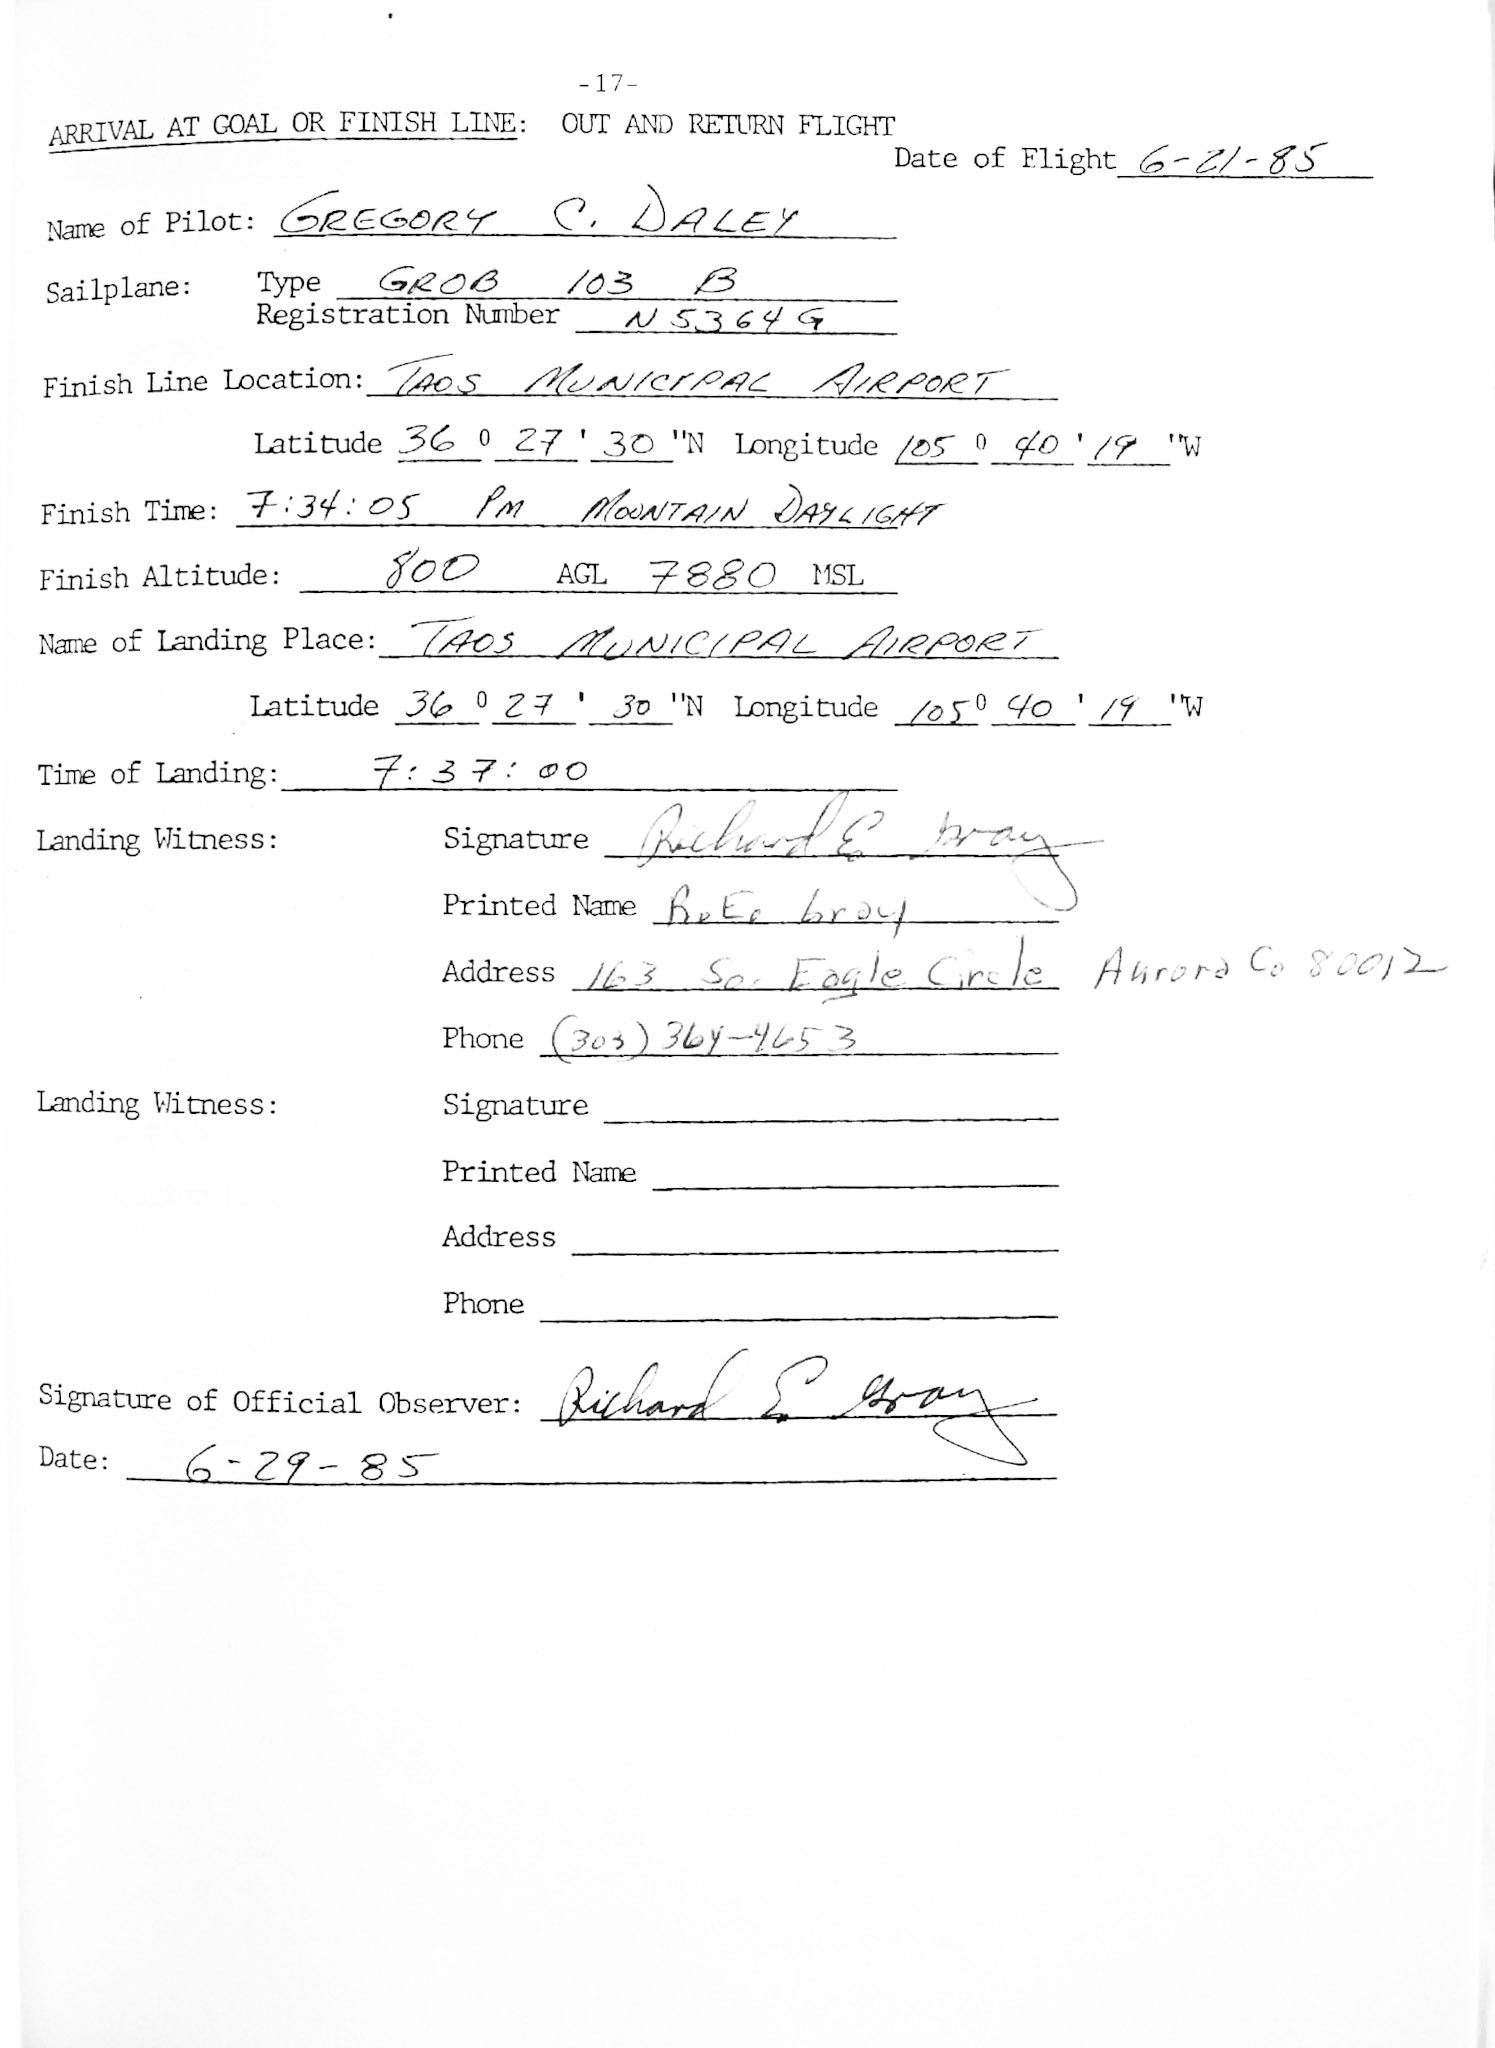 -17-
ARRIVAL AT GOAL OR FINISH LINE: OUT AND RETURN FLIGHT
Date of Flight 6-21-85
Name of Pilot: GREGORY C. DALEY
Sailplane: Type GROB 103 B
Registration Number N5364G
Finish Line Location: TAOS MUNICIPAL AIRPORT
Latitude 36 0 27 ' 30 "N Longitude 105 0 40 ' 19 "W
Finish Time: 7:34:05 PM MOUNTAIN DAYLIGHT
Finish Altitude: 800 AGL 7880 MSL
Name of Landing Place: TAOS MUNICIPAL AIRPORT
Latitude 36 0 27 ' 30 "N Longitude 105 0 40 ' 19 "W
Time of Landing: 7:37:00
Landing Witness: Signature Richard E Gray
Printed Name R.E. Gray
Address 163 So. Eagle Circle Aurora Co 80012
Phone (303) 364-4653
Landing Witness: Signature
Printed Name
Address
Phone
Signature of Official Observer: Richard E Gray
Date: 6-29-85